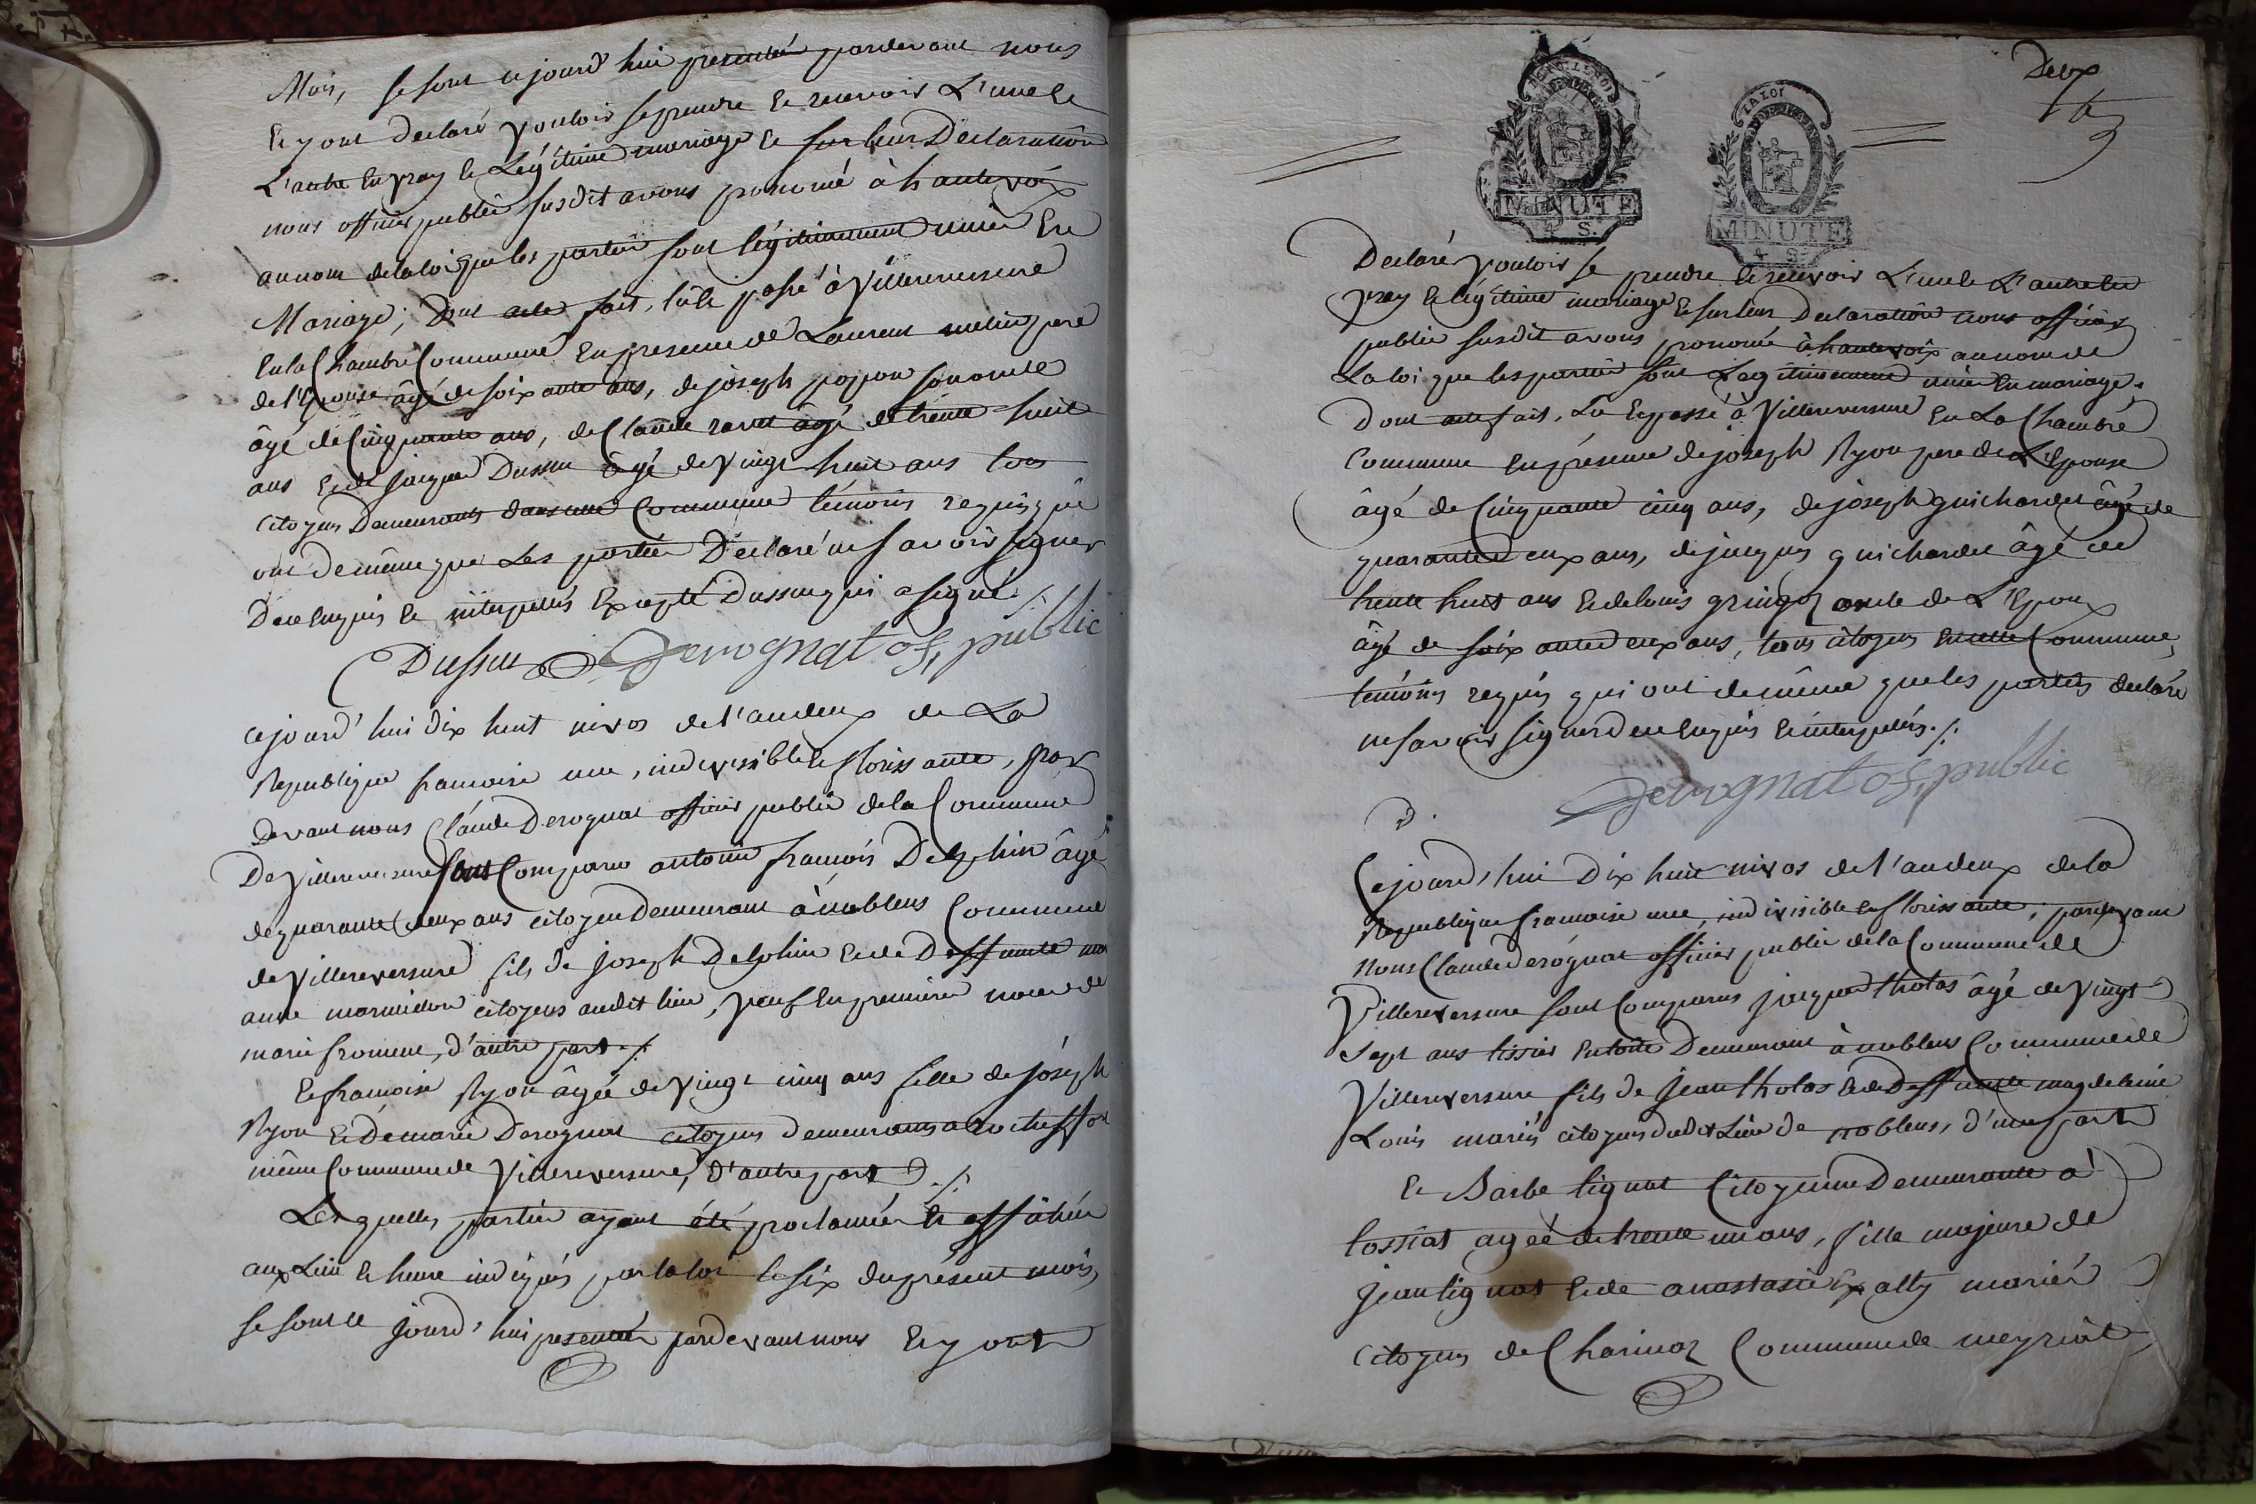 Mois, se sont ce jourd'hui presentés pardevant nous
Et y ont declaré vouloir se prendre et recevoir L'une et
L'autre en vray et Légitime mariage et sur leur Declaration
nous officier public susdit avons prononcé à haute voix
au nom de la loi que les parties sont légitimement unies En
Mariage; Dont acte fait, lû et passé à Villereversure
En la Chambre Commune En presence de Laurent
de l'Epouse âgé de soixante ans, de joseph popon son oncle
âgé de Cinquante ans, de Claude ravet âgé de trente huit
ans et de jacque Dussuc âgé de vingt huit ans tous
citoyens Demeurants dans une Commune témoins requis qui
ont de même que Les parties Declaré ne savoir signer
De ce Enquis et interpellés Excepté Dussuc qui a signé ./.
Dussuc Derognat of. public
cejourd'hui dix huit nivos de l'an deux de La
Republique francoise une, indivisible et florissante, par
Devant nous Claude Derognat officier public de la Commune
De Villereversure sont Comparu antoine francois Delphin âgé
de quarante deux ans citoyen Demeurant à noblens Commune
de Villereversure fils de joseph Delphin et de Deffunte ma
anne marmidon citoyens audit lieu, veuf En premiere noce de
marie fromene, d'autre part ./.
Et francoise Ryon âgée de vingt cinq ans fille de joseph
Ryon Et De marie Derognat citoyens demeurants a Rocheffor
même Commune de Villereversure, d'autre part ./.
Lesquelles parties ayant été proclamées et affichées
aux Lieu et heure indiqués par la loi le six du présent mois,
se sont ce jourd'hui presentés pardevant nous Et y ont
Deux
LA LOI
MINUTE
4 S.
LA LOI
MINUTE
4 S.
Declaré vouloir se prendre et recevoir L'une L'autre en
vray et légitime mariage et sur leur Declaration nous officier
public susdit avons prononcé à haute voix au nom de
La loi que les parties sont Legitimement unies En mariage.
Dont acte fait, Lu Et passé à Villereversure En La Chambre
Commune En présence de joseph Ryon pere de L'Epouse
âgé de Cinquante cinq ans, de joseph guichardet âgé de
quarante deux ans, de jacques guichardet âgé de
trente huit ans Et de louis gringoz oncle de L'Epoux
âgé de soixante deux ans, tous citoyens En cette Commune,
témoins requis qui ont de même que les parties declaré
ne savoir signer de ce Enquis Et interpellés ./.
Derognat of. public
Cejourd'hui Dix huit nivos de l'an deux de la
Republique francoise une, indivisible et florissante, pardevant
Nous Claude Derognat officier public de la Commune de
Villereversure sont Comparus jacque tholas âgé de vingt
Sept ans tissier En toile Demeurant à noblens Commune de
Villereversure fils de jean tholas Et de Deffunte magdeleine
Louis mariés citoyens dudit Lieu de noblens, d'une part
Et Barbe lignat Citoyenne Demeurante à
tossiat agée de trente un ans, fille majeure de
jean lignat Et de anastasie mariés
citoyens de Charinaz Commune de meyriat